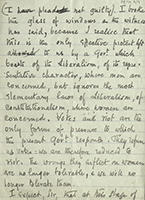 I have pleaded not guilty. I broke
the glass of windows as the witness
has said, because I realise that
this is the only effective protest left
to us by a Govt which
boasts of its Liberalism, of its repre-
sentative character, where men are
concerned, but ignores the most
elementary laws of Liberalism, of
Constitutionalism, where women are
concerned. Votes and riot are the
only forms of pressure to which
the present Govt responds. They refuse
us votes we are therefore reduced to
riot. The wrongs they inflict on women
are no longer tolerable, & we will no
longer tolerate them.
I respect Sir, that at this stage of